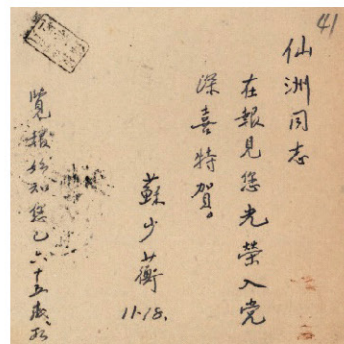 41
仙洲同志
在報見您光榮入党
深喜特賀。
蘇步蘅
11.18.
覽報始知您已六十五歲